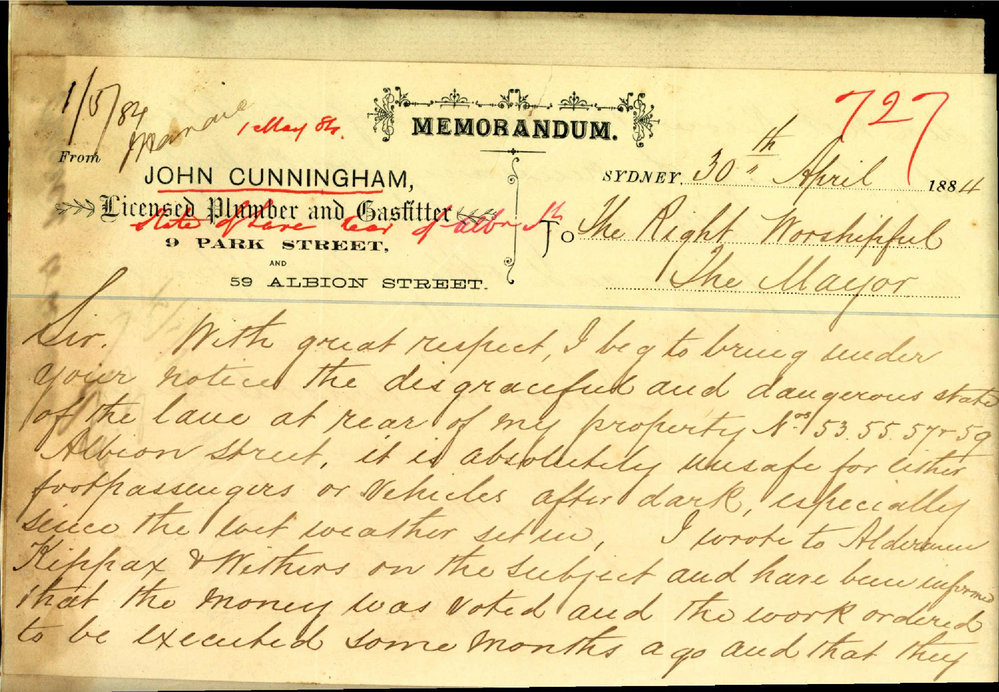 1/5/84
1 May 84.
727
MEMORANDUM.
From
JOHN CUNNINGHAM,
Licensed Plumber and Gasfitter
State of lane rear of Albn St
9 PARK STREET,
AND
59 ALBION STREET.
SYDNEY, 30th April 1884
To The Right Worshipful
The Mayor
Sir. With great respect, I beg to bring under
your notice the disgraceful and dangerous state
of the lane at rear of my property Nos 53. 55. 57 & 59
Albion Street, it is absolutely unsafe for either
footpassengers or vehicles after dark, especially
since the wet weather set in, I wrote to Aldermen
Kippax & Withers on the subject and have been informed
that the money was voted and the work ordered
to be executed some months ago and that they